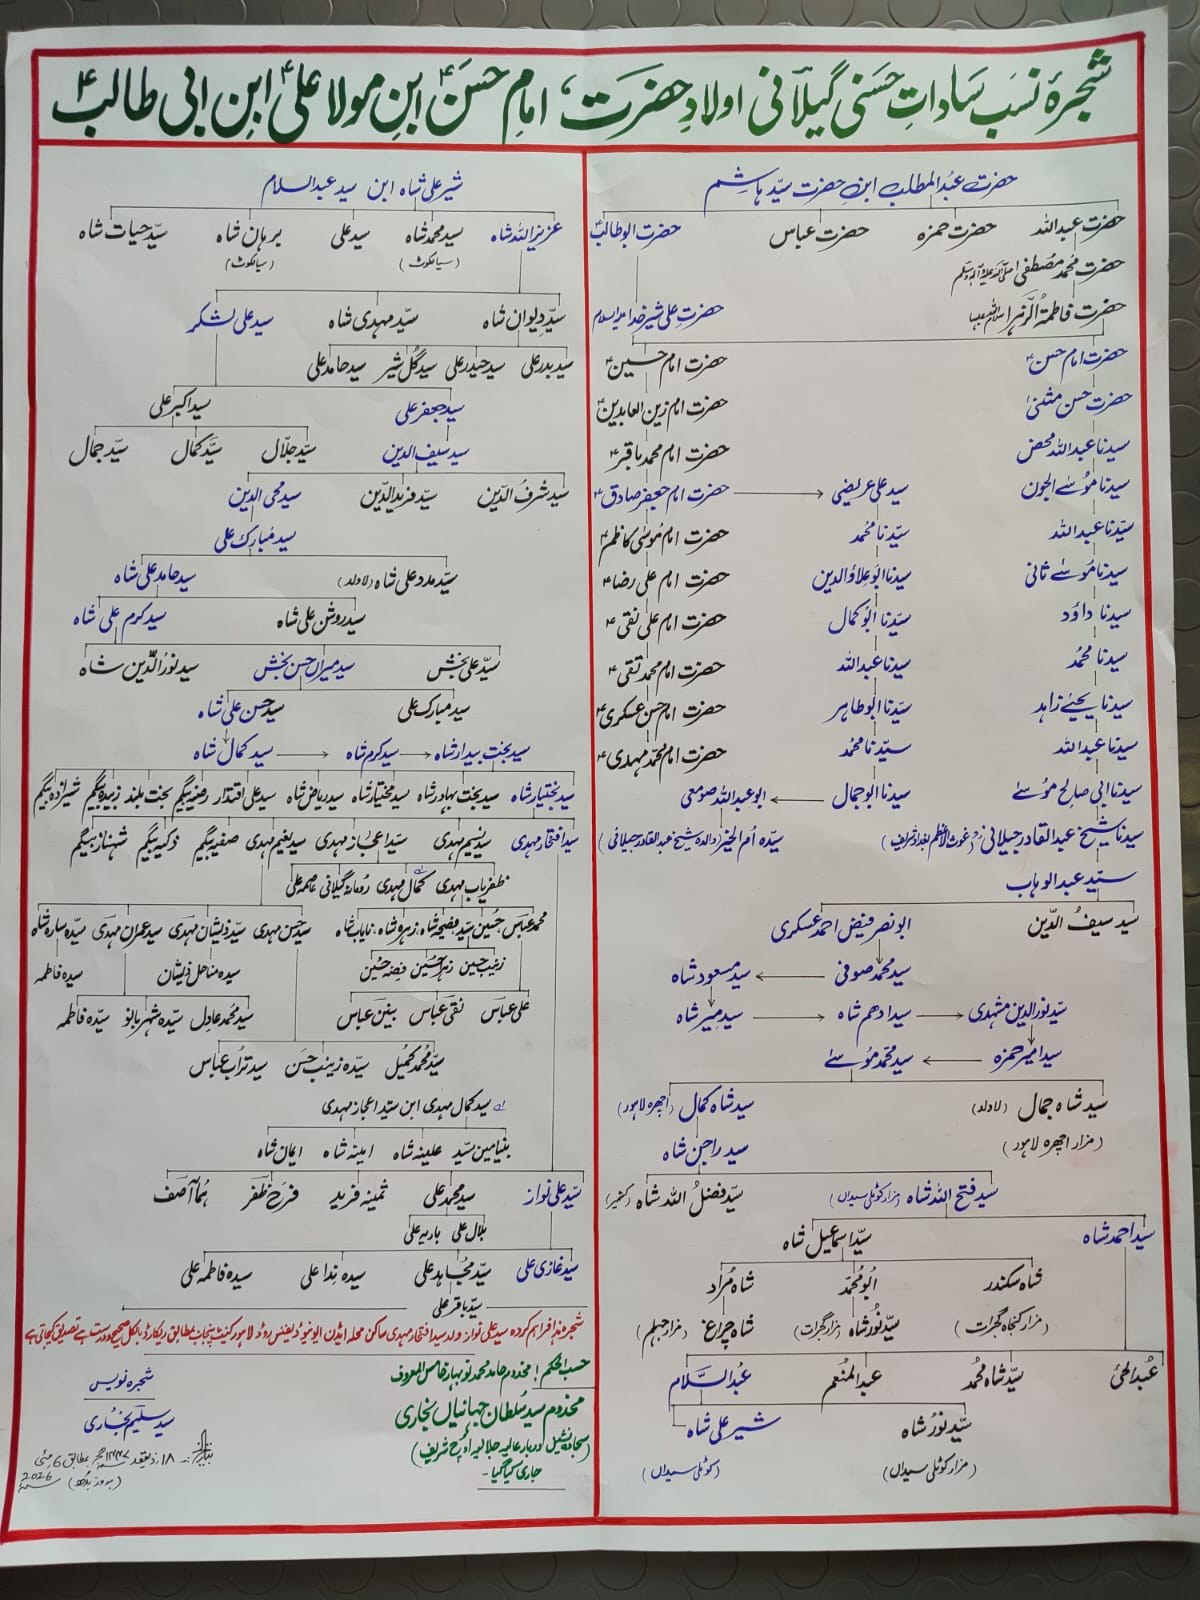 شجرۂ نسب سادات حسنی گیلانی اولادِ حضرت امام حسنؑ ابنِ مولا علیؑ ابنِ ابی طالبؑ
حضرت عبدالمطلب ابنِ حضرت سیّد ہاشم
حضرت عبداللہ حضرت حمزہ حضرت عباس حضرت ابوطالبؑ
حضرت محمد مصطفیٰ صلی اللہ علیہ وآلہ وسلم
حضرت فاطمۃ الزہرا سلام اللہ علیہا حضرت علی شیر خدا علیہ السلام
حضرت امام حسنؑ حضرت امام حسینؑ
حضرت حسن مثنیٰ حضرت امام زین العابدینؑ
سیدنا عبداللہ محض حضرت امام محمد باقرؑ
سیدنا موسےٰ الجون سید علی عریضی حضرت امام جعفر صادقؑ
سیّدنا عبداللہ سیّدنا محمد حضرت امام موسیٰ کاظمؑ
سیدنا موسےٰ ثانی سیدنا ابوعلاؤالدین حضرت امام علی رضاؑ
سیدنا داؤد سیّدنا ابو کمال حضرت امام علی نقیؑ
سیدنا محمد سیدنا عبداللہ حضرت امام محمد تقیؑ
سیدنا یحیےٰ زاہد سیّدنا ابوطاہر حضرت امام حسن عسکریؑ
سیدنا عبداللہ سیّدنا محمد حضرت امام محمد مہدیؑ
سیدنا ابی صالح موسےٰ سیدنا ابوجمال ابو عبداللہ صومعی
سیدنا شیخ عبدالقادر جیلانی (غوث الاعظم بغداد شریف) سیّدہ اُم الخیر (والدہ شیخ عبدالقادر جیلانی)
سیّد عبدالوہاب
سید سیفُ الدّین ابو نصر فیض احمد عسکری
سید محمد صوفی سید مسعود شاہ
سیّد نورالدین مشہدی سید ادھم شاہ سید میر شاہ
سید امیر حمزہ سید محمّد موسےٰ
سید شاہ جمال (لاولد) سید شاہ کمال (اچھرہ لاہور)
(مزار اچھرہ لاہور) سید راجن شاہ
سید فتح اللہ شاہ (مزار کوٹلی سیداں) سیّد فضلُ اللہ شاہ
سید احمد شاہ سیّد اسماعیل شاہ
شاہ سکندر ابُو محمّد شاہ مُراد
(مزار کنجاہ گجرات) سیّد نُور شاہ (مزار گجرات) شاہ چراغ (مزار جہلم)
عبدالحئی سیّد شاہ محمُد عبدالمنعم عبدالسّلام
سیّد نورُ شاہ شیر علی شاہ
(مزار کوٹلی سیداں) (کوٹلی سیداں)
شیر علی شاہ ابن سید عبدالسلام
عزیز اللہ شاہ سید محمد شاہ سید علی برہان شاہ سیّد حیات شاہ
(سیالکوٹ) (سیالکوٹ)
سیّد دیوان شاہ سیّد مہدی شاہ سید علی لشکر
سید بدر علی سید حیدر علی سید گُل شیر سید حامد علی
سید جعفر علی سید اکبر علی
سید سیف الدین سیّد جلال سیّد کمال سیّد جمال
سید شرفُ الدّین سیّد فرید الدّین سید محی الدین
سید مُبارک علی
سیّد مدد علی شاہ (لاولد) سید حامد علی شاہ
سید روشن علی شاہ سید کرم علی شاہ
سیّد علی بخش سید میراں حسن بخش سید نورُالدّین شاہ
سید مبارک علی سیّد حسن علی شاہ
سیّد بخت بیدار شاہ سید کرم شاہ سید کمال شاہ
سیّد بختیار شاہ سید بخت بہادر شاہ سید مختیار شاہ سید ریاض شاہ سید علی اقتدار رضیہ بیگم بخت بلند زبیدہ بیگم شیرازدہ بیگم
سید افتخار مہدی سیّد نسیم مہدی سیّد اعجاز مہدی سید نعیم مہدی صغیر بیگم ذکیہ بیگم شہناز بیگم
ظفریاب مہدی کمال مہدی رومانہ گیلانی عاصمہ علی
محمد عباس حُسین سیّد فضیحہ شاہ زہرہ شاہ نایاب شاہ سید حسن مہدی سیّد ذیشان مہدی سید عمران مہدی سیّدہ سارہ شاہ
زینب حسین زہرا حسین فضہ حسین سیدہ مناحل ذیشان سیدہ فاطمہ
علی عباس نقی عباس بنین عباس سید محمد عادل سیّدہ شہر بانو سیّدہ فاطمہ
سیّد محمد کمیل سیّدہ زینب حسن سید تراب عباس
سید کمال مہدی ابن سیّد اعجاز مہدی
بنیامین سیّد علینہ شاہ امینہ شاہ ایمان شاہ
سیّد علی نواز سید محمد علی ثمینہ فرید فرح ظفر ہُما آصف
بلال علی باریہ علی
سید غازی علی سیّد مجاہد علی سیدہ ندا علی سیدہ فاطمہ علی
سیّد باقر علی
شجرہ ہٰذا فراہم کردہ سید علی نواز ولد سید افتخار مہدی ساکن محلہ ایڈن ایونیو ڈیفنس روڈ لاہور کینٹ پنجاب مطابق ریکارڈ بالکل صحیح و درست ہے تصدیق کی جاتی ہے
حسب الحکم! مخدوم حامد محمد نوبہار خامس المعروف
مخدوم سید سُلطان جہانیاں بخاری
(سجادہ نشین دربار عالیہ جلالیہ اوچ شریف)
جاری کیا گیا۔
شجرہ نویس
سید سلیم بُخاری
بتاریخ ۱۸ ذیقعد ۱۴۴۷ھ بمطابق 6 مئی
2026 (بروز بدھ)